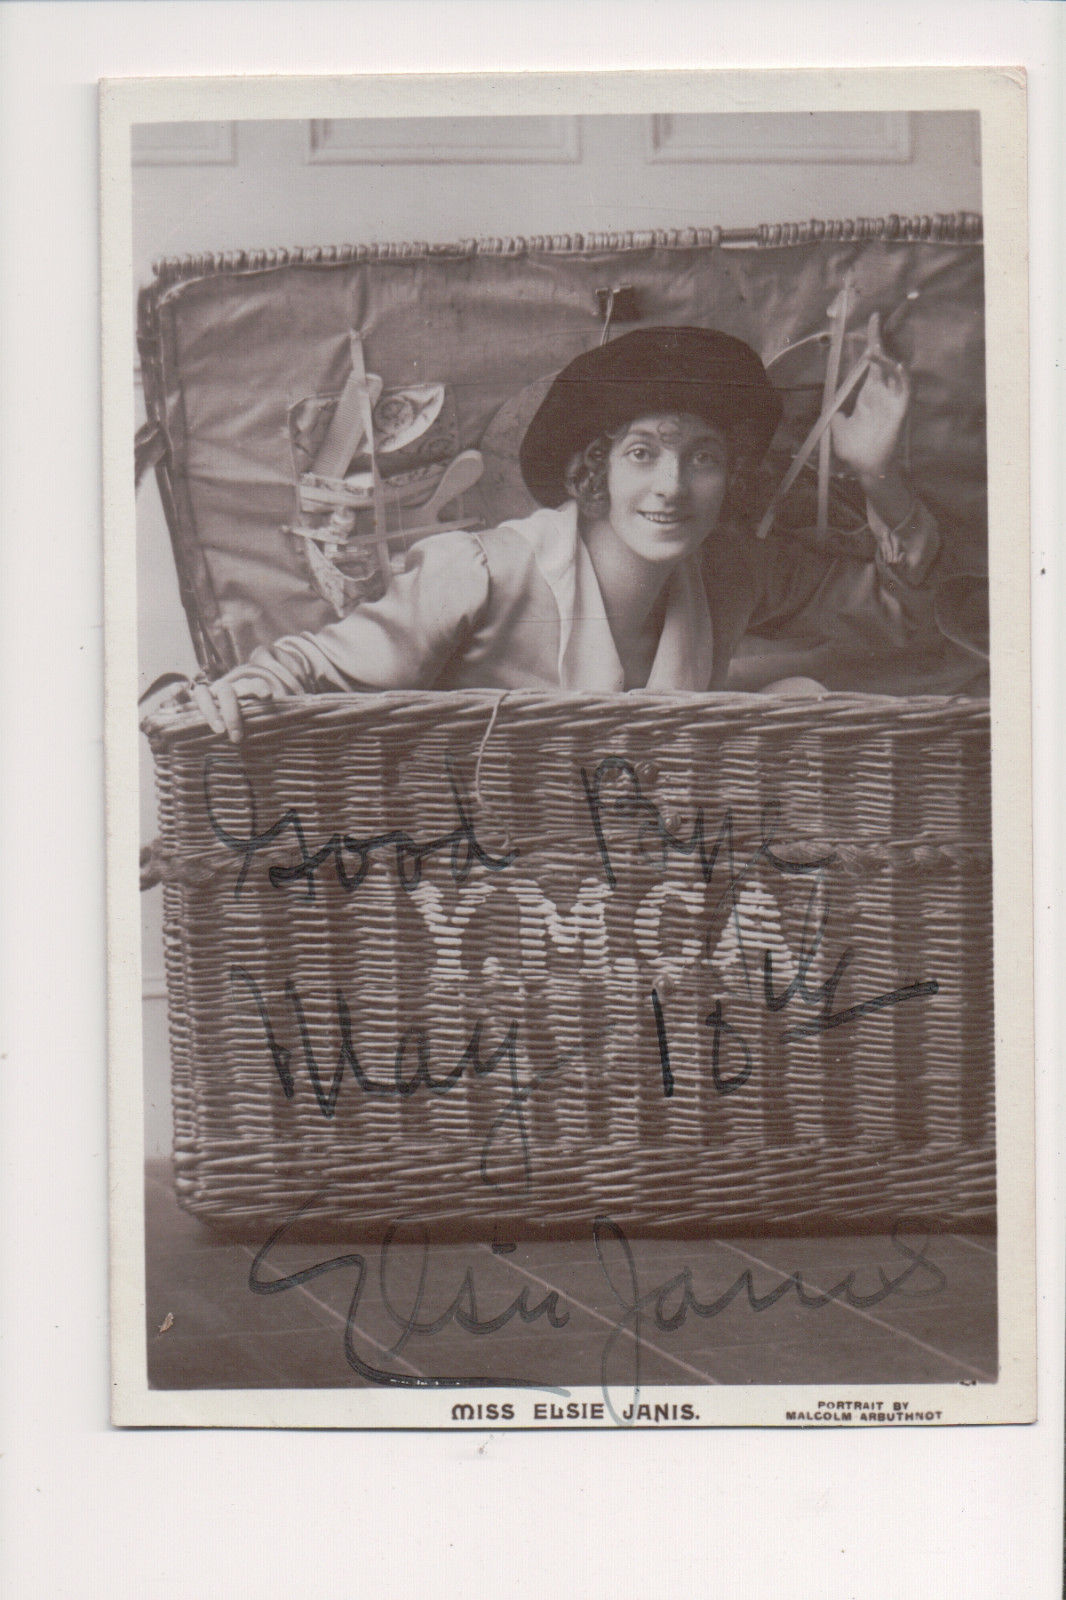 Good Bye
Y.M.C.A
May 10th
Elsie Janis
MISS ELSIE JANIS.
PORTRAIT BY
MALCOLM ARBUTHNOT